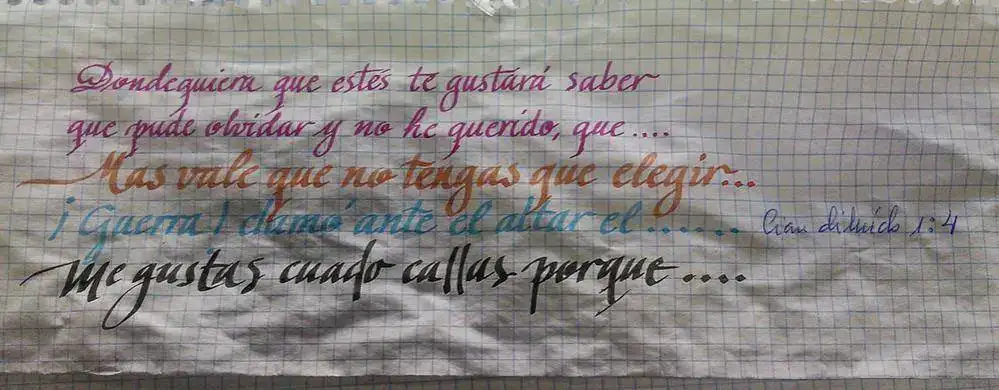 Dondequiera que estés te gustará saber
que pude olvidar y no he querido, que ....
Mas vale que no tengas que elegir...
¡Guerra! clamó ante el altar el ...... 1:4
Me gustas cuado callas porque ....